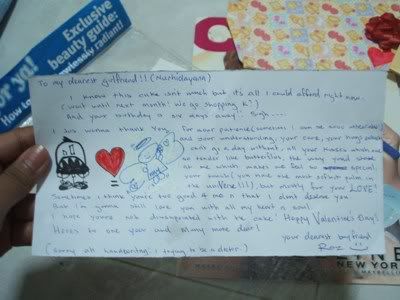 Exclusive
beauty guide:
or you!
How to look flawlessly radiant!
To my dearest girlfriend!!! (Nurhidayann)
I know this cake isnt much but its all I could afford right now.
(wait until next month! We go shopping K?)
And your birthday is six days away! Sigh...
I jus wanna thank you. For your patience (sometimes I can be
and your understanding, your care, your hungs
cant go a day without, all your kisses which are
so tender like butterflies, the way your
at me which makes me feel special
your smile (you have one most
the unIVerse!!!), but mostly for your LOVE!
Sometimes I think you're too good to me n that I dont deserve you
But im gonna still love you with all my heart n soul.
I hope youre not disappointed with the cake! Happy Valentine's Day!
Heres to one year and Many more dear!
your dearest boyfriend
(sorry ah handwriting. I trying to be a doctor.)
Roz
NEW YORK
MAYBELLINE